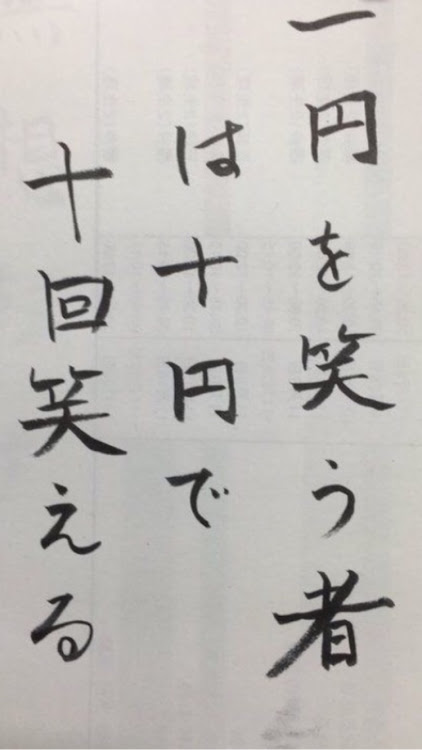 一円を笑う者
は十円で
十回笑える